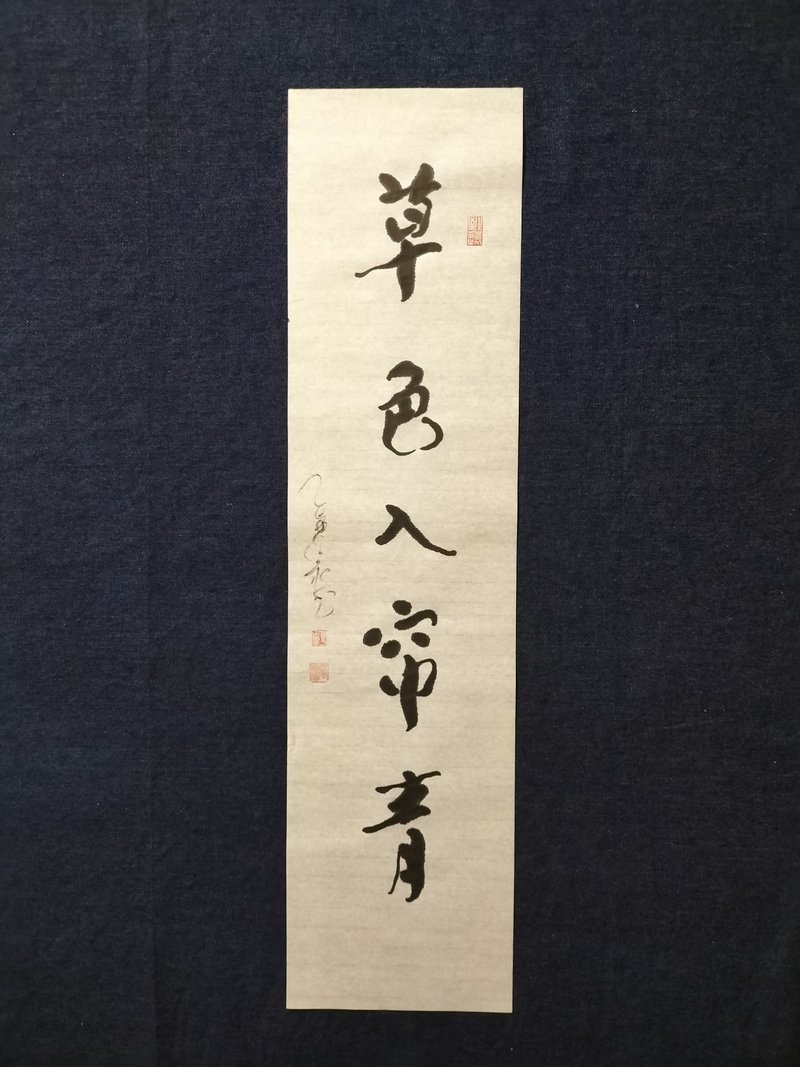 草色入帘青